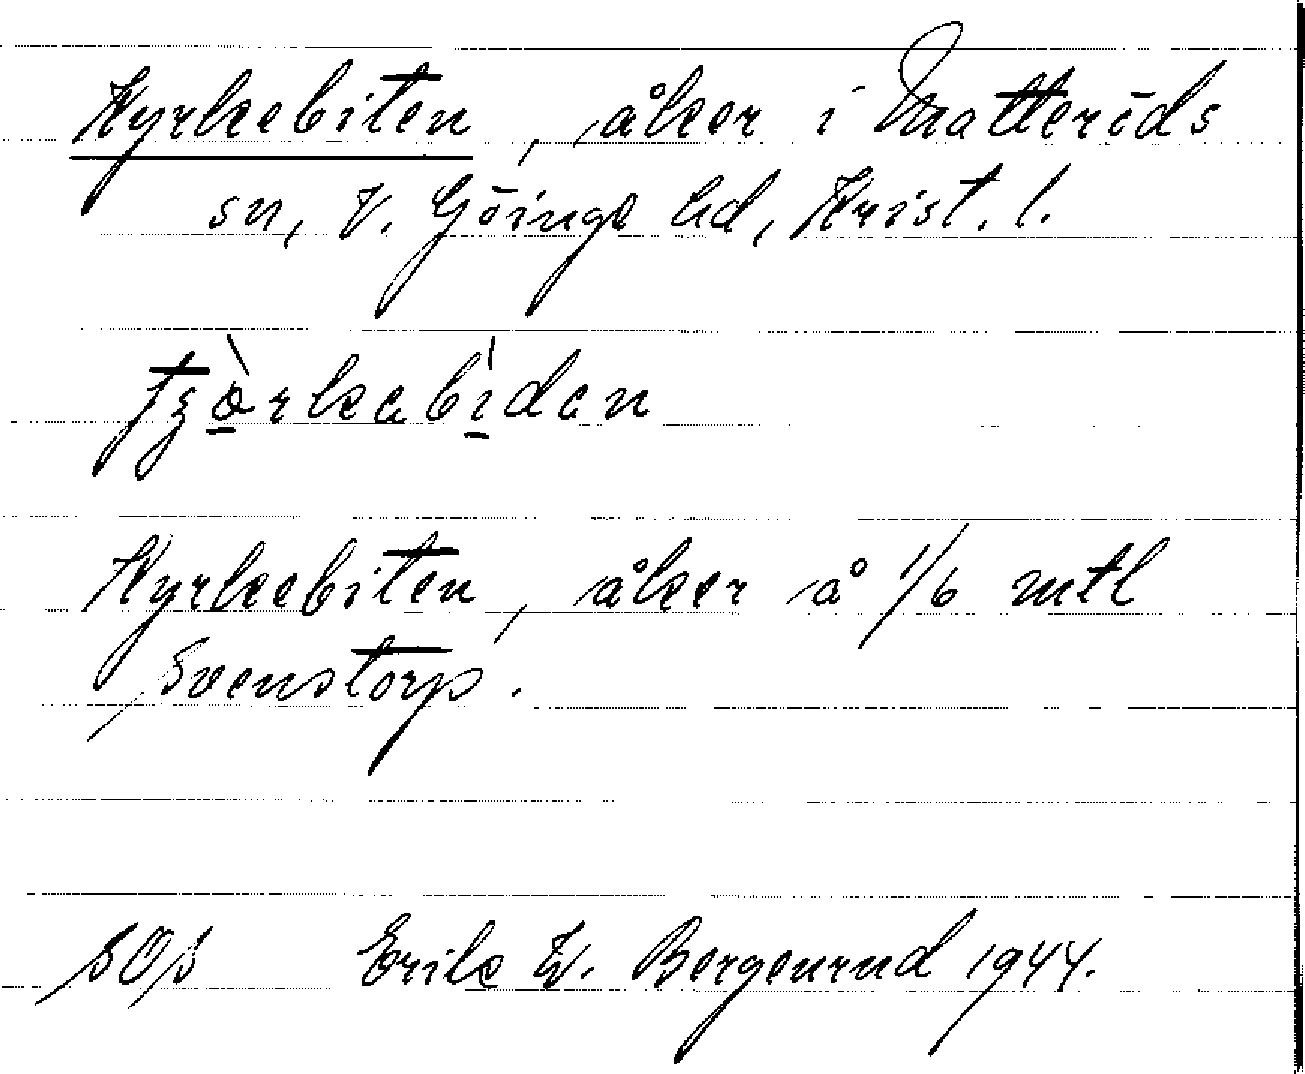 Kyrkebiten, åker i Matteröds
sn, V. Göinge hd, Krist. l.
Kyrkebiten, åker å 1/6 mtl
Svenstorp.
SOS Erik W. Bergenrud 1944.